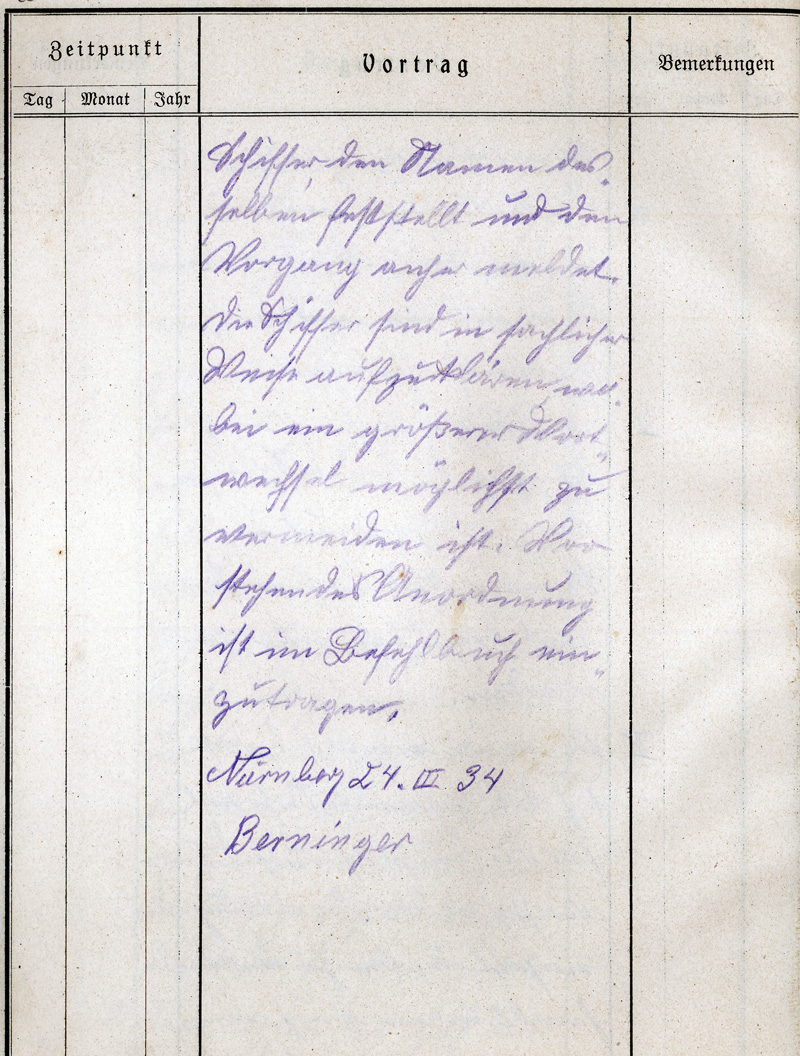 Zeitpunkt
Vortrag
Bemerkungen
Tag Monat Jahr
Schiffer den Namen des-
selben feststellt und den
Vorgang anher meldet.
Die Schiffer sind in sachlicher
Weise aufzuklären, wo-
bei ein größerer Wort-
wechsel möglichst zu
vermeiden ist. Vor
stehendes Anordnung
ist im Befehlbuch ein-
zutragen.
Nürnberg 24. III 34
Berninger